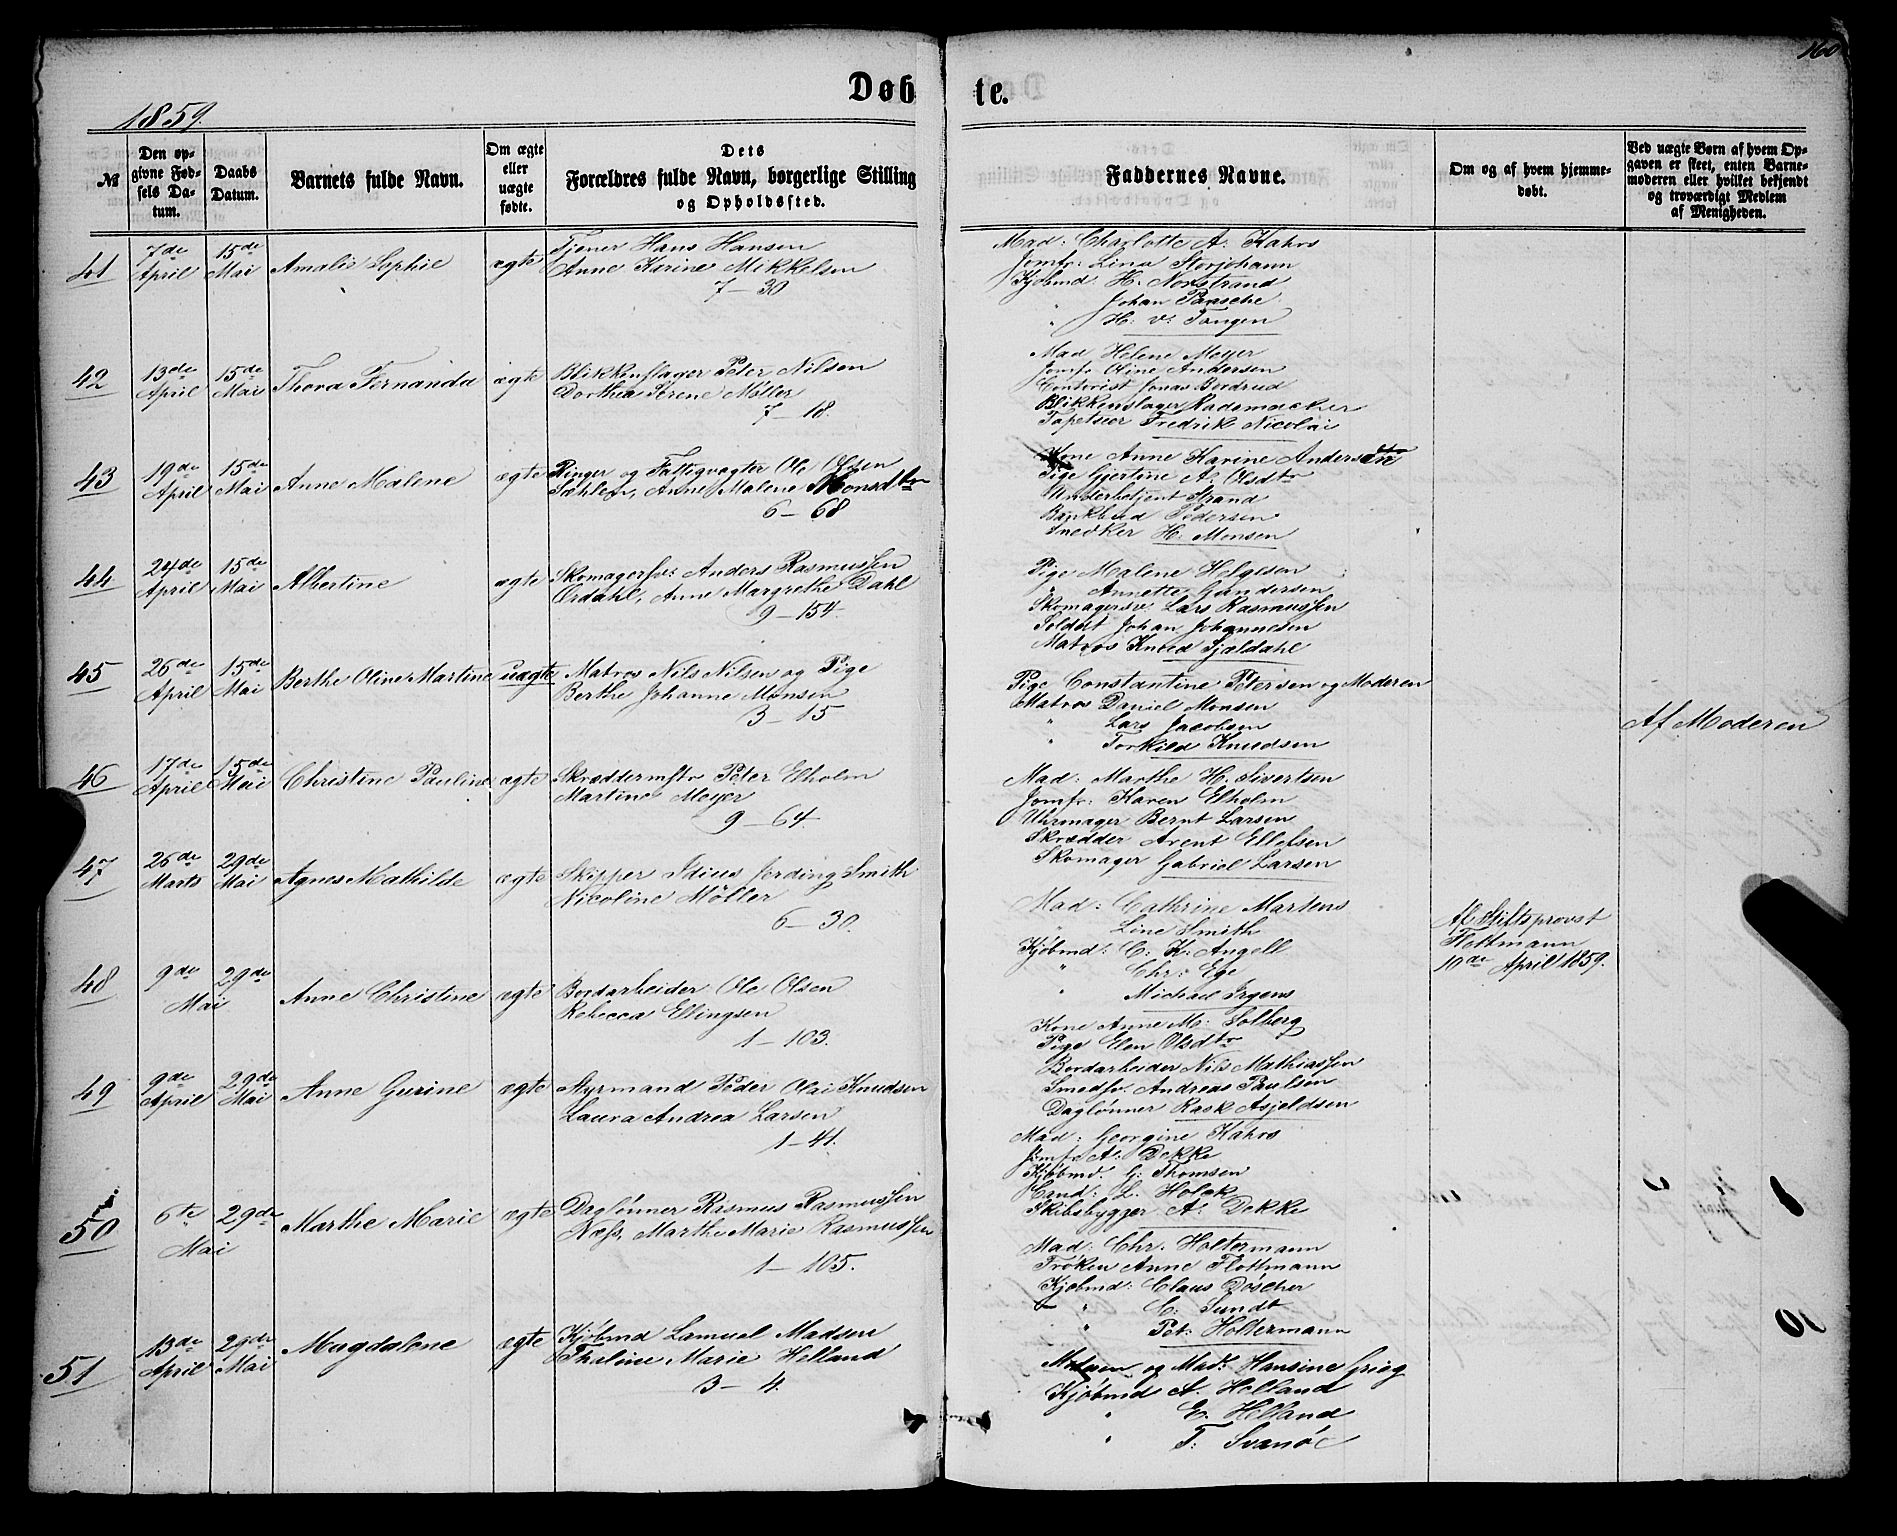 160
Døb te.
1859.
№
Den op-
givne Fød-
sels Da-
tum.
Daabs
Datum.
Barnets fulde Navn.
Om ægte
eller
uægte
fødte.
Dets
Forældres fulde Navn, borgerlige Stilling
og Opholdssted.
Faddernes Navne.
Om og af hvem hjemme-
døbt.
Ved uægte Børn af hvem Op-
gaven er skeet, enten Barne-
moderen eller hvilket bekjendt
og troværdigt Medlem
af Menigheden.
41 7de April 15de Mai Amalie Sophie ægte
Tjener Hans Hansen
Anne Karine Mikkelsen
7–30
Mad: Charlotte A. Kahrs
Jomfr: Lina Storjohann
Kjøbmd H. Nordstrand
Johan Paasche
" H. v. Tangen
42 13de April 15de Mai Thora Fernanda ægte
Blikkenslager Peter Nilsen
Dorthea Serene Møller
7–18.
Mad Helene Meyer
Jomfr Oline Andersen
Contorist Jonas Bordrud
Blikkenslager Rademacher
Tapetseer Fredrik Nicolai
43 19de April 15de Mai Anne Malene ægte
Ringer og Fattigvogter Ole Olsen
Sæhle, Anne Malene Monsdtr
6–68
Kone Anne Karine Andersdtr
Pige Gjertine A. Olsdtr
Underbetjent Strand
Bankbud Pedersen
Snedker H. Monsen
44 24de April 15de Mai Albertine ægte
Skomagersv: Anders Rasmussen
Ørdahl, Anne Margrethe Dahl
9–154.
Pige Malene Helgesen
" Annette Gundersen
Skomagersv. Lars Rasmussen
Soldat Johan Johannesen
Matros Knud Fjældahl
45 26de April 15de Mai Berthe Oline Martine uægte
Matros Nils Nilsen og Pige
Berthe Johanne Monsen
3–15
Pige Constantine Petersen og Moderen
Matros Daniel Monsen
" Lars Jacobsen
" Torkild Knudsen
Af Moderen
46 17de April 15de Mai Christine Pauline ægte
Skræddermstr Peter Elholm
Martine Meyer
9–64.
Mad: Marthe H. Sivertsen
Jomfr: Karen Elholm
Uhrmager Bernt Larsen
Skrædder Arent Ellefsen
Skomager Gabriel Larsen
47 26de Marts 29de Mai Agnes Mathilde ægte
Skipper Idius Jording Smith
Nicoline Møller
6–30.
Mad: Cathrine Martens
" Line Smith
Kjøbmd: C. K. Angell
" Chr: Ege
" Michael Irgens
Af Stiftsprovst
Flottmann
10de April 1859.
48 9de Mai 29de Anne Christine ægte
Bordarbeider Ole Olsen
Rebecca Ellingsen
1–103.
Kone Anne M: Solberg
Pige Elen Olsdtr
Bordarbeider Nils Mathiassen
Smedsv. Andreas Paulsen
Daglønner Rask Asjeldsen
49 9de April 29de Mai Anne Gurine ægte
Styrmand Peder Olai Knudsen
Laura Andrea Larsen
1–41.
Mad: Georgine Kahrs
Jomfr A: Dekke
Kjøbmd: G: Thomsen
Cand: L. Holck
Skibsbygger A: Dekke
50 6te Mai 29de Marthe Marie ægte
Daglønner Rasmus Rasmussen
Næss, Marthe Marie Rasmussen
1–105.
Mad: Chr. Holtermann
Frøken Anne Flottmann
Kjøbmd: Claus Döscher
" C: Sundt
" Pet: Holtermann
51 13de April 29de Mai Magdalene ægte
Kjøbmd Samuel Madsen
Thaline Marie Helland
3–4.
Moderen og Mad: Hansine Grieg
Kjøbmd A. Helland
" E. Helland
" T: Svanöe